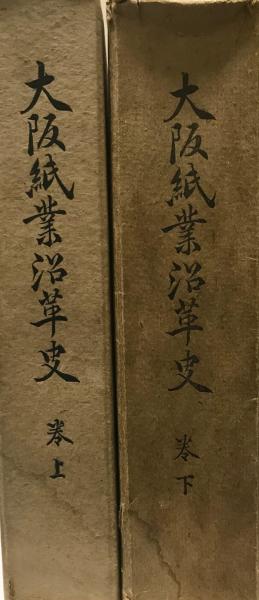 大阪紙業沿革史 巻上
大阪紙業沿革史 巻下